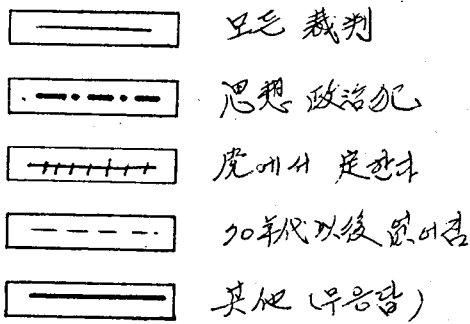 모든 裁判
思想 政治犯
에서 定한다
30年代 以後 없어짐
其他 (무응답)